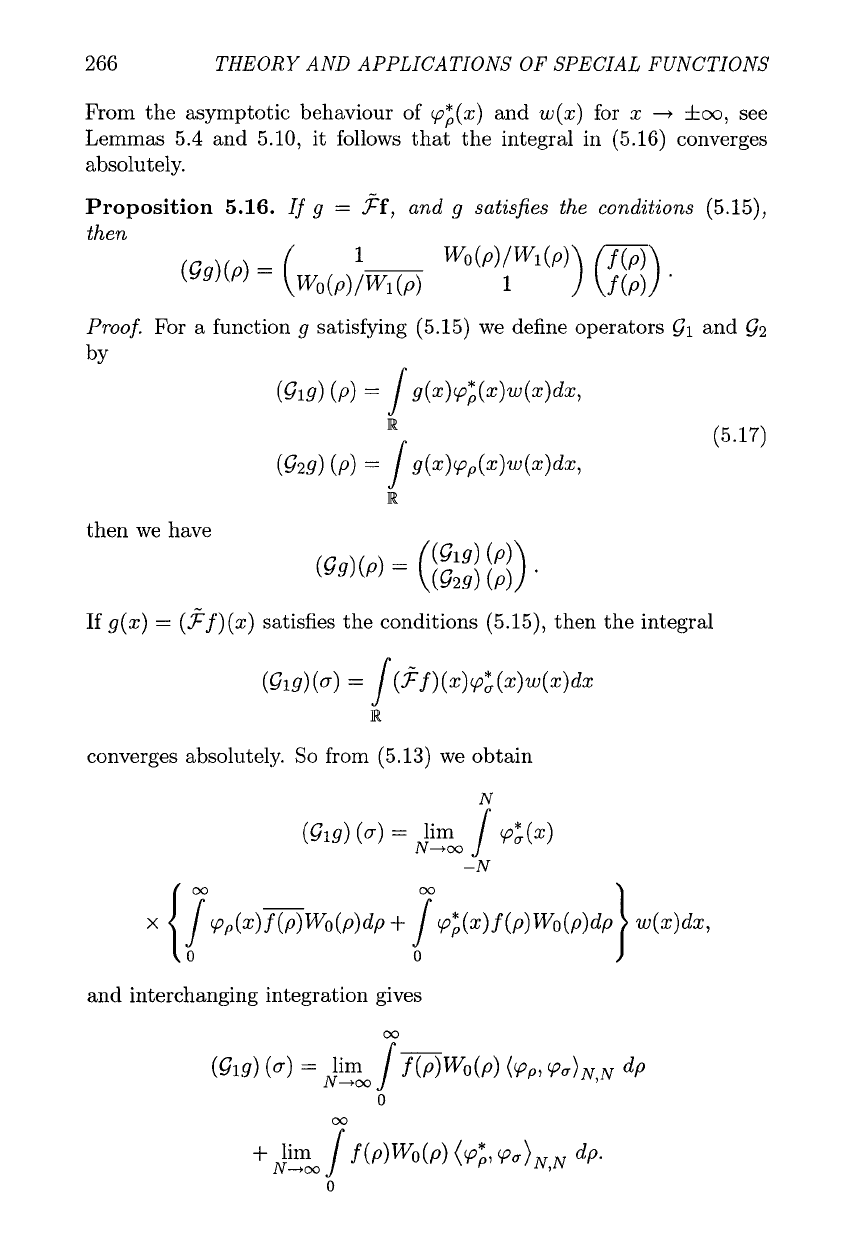 266 THEORY AND APPLICATIONS OF SPECIAL FUNCTIONS
From the asymptotic behaviour of φ*ρ(x) and w(x) for x → ±∞, see
Lemmas 5.4 and 5.10, it follows that the integral in (5.16) converges
absolutely.
Proposition 5.16. If g = F̃f, and g satisfies the conditions (5.15),
then
(𝒢g)(ρ) = ( 1 W₀(ρ)/W₁(ρ) ; W₀(ρ)/\overline{W₁(ρ)} 1 ) ( \overline{f(ρ)} ; f(ρ) ).
Proof. For a function g satisfying (5.15) we define operators 𝒢₁ and 𝒢₂
by
(𝒢₁g) (ρ) = ∫_ℝ g(x)φ*ρ(x)w(x)dx,
(5.17)
(𝒢₂g) (ρ) = ∫_ℝ g(x)φρ(x)w(x)dx,
then we have
(𝒢g)(ρ) = ( (𝒢₁g) (ρ) ; (𝒢₂g) (ρ) ).
If g(x) = (F̃f)(x) satisfies the conditions (5.15), then the integral
(𝒢₁g)(σ) = ∫_ℝ (F̃f)(x)φ*σ(x)w(x)dx
converges absolutely. So from (5.13) we obtain
(𝒢₁g) (σ) = lim_{N→∞} ∫_{-N}^{N} φ*σ(x)
× { ∫_0^∞ φρ(x)\overline{f(ρ)}W₀(ρ)dρ + ∫_0^∞ φ*ρ(x)f(ρ)W₀(ρ)dρ } w(x)dx,
and interchanging integration gives
(𝒢₁g) (σ) = lim_{N→∞} ∫_0^∞ \overline{f(ρ)}W₀(ρ) ⟨φρ, φσ⟩_{N,N} dρ
+ lim_{N→∞} ∫_0^∞ f(ρ)W₀(ρ) ⟨φ*ρ, φσ⟩_{N,N} dρ.